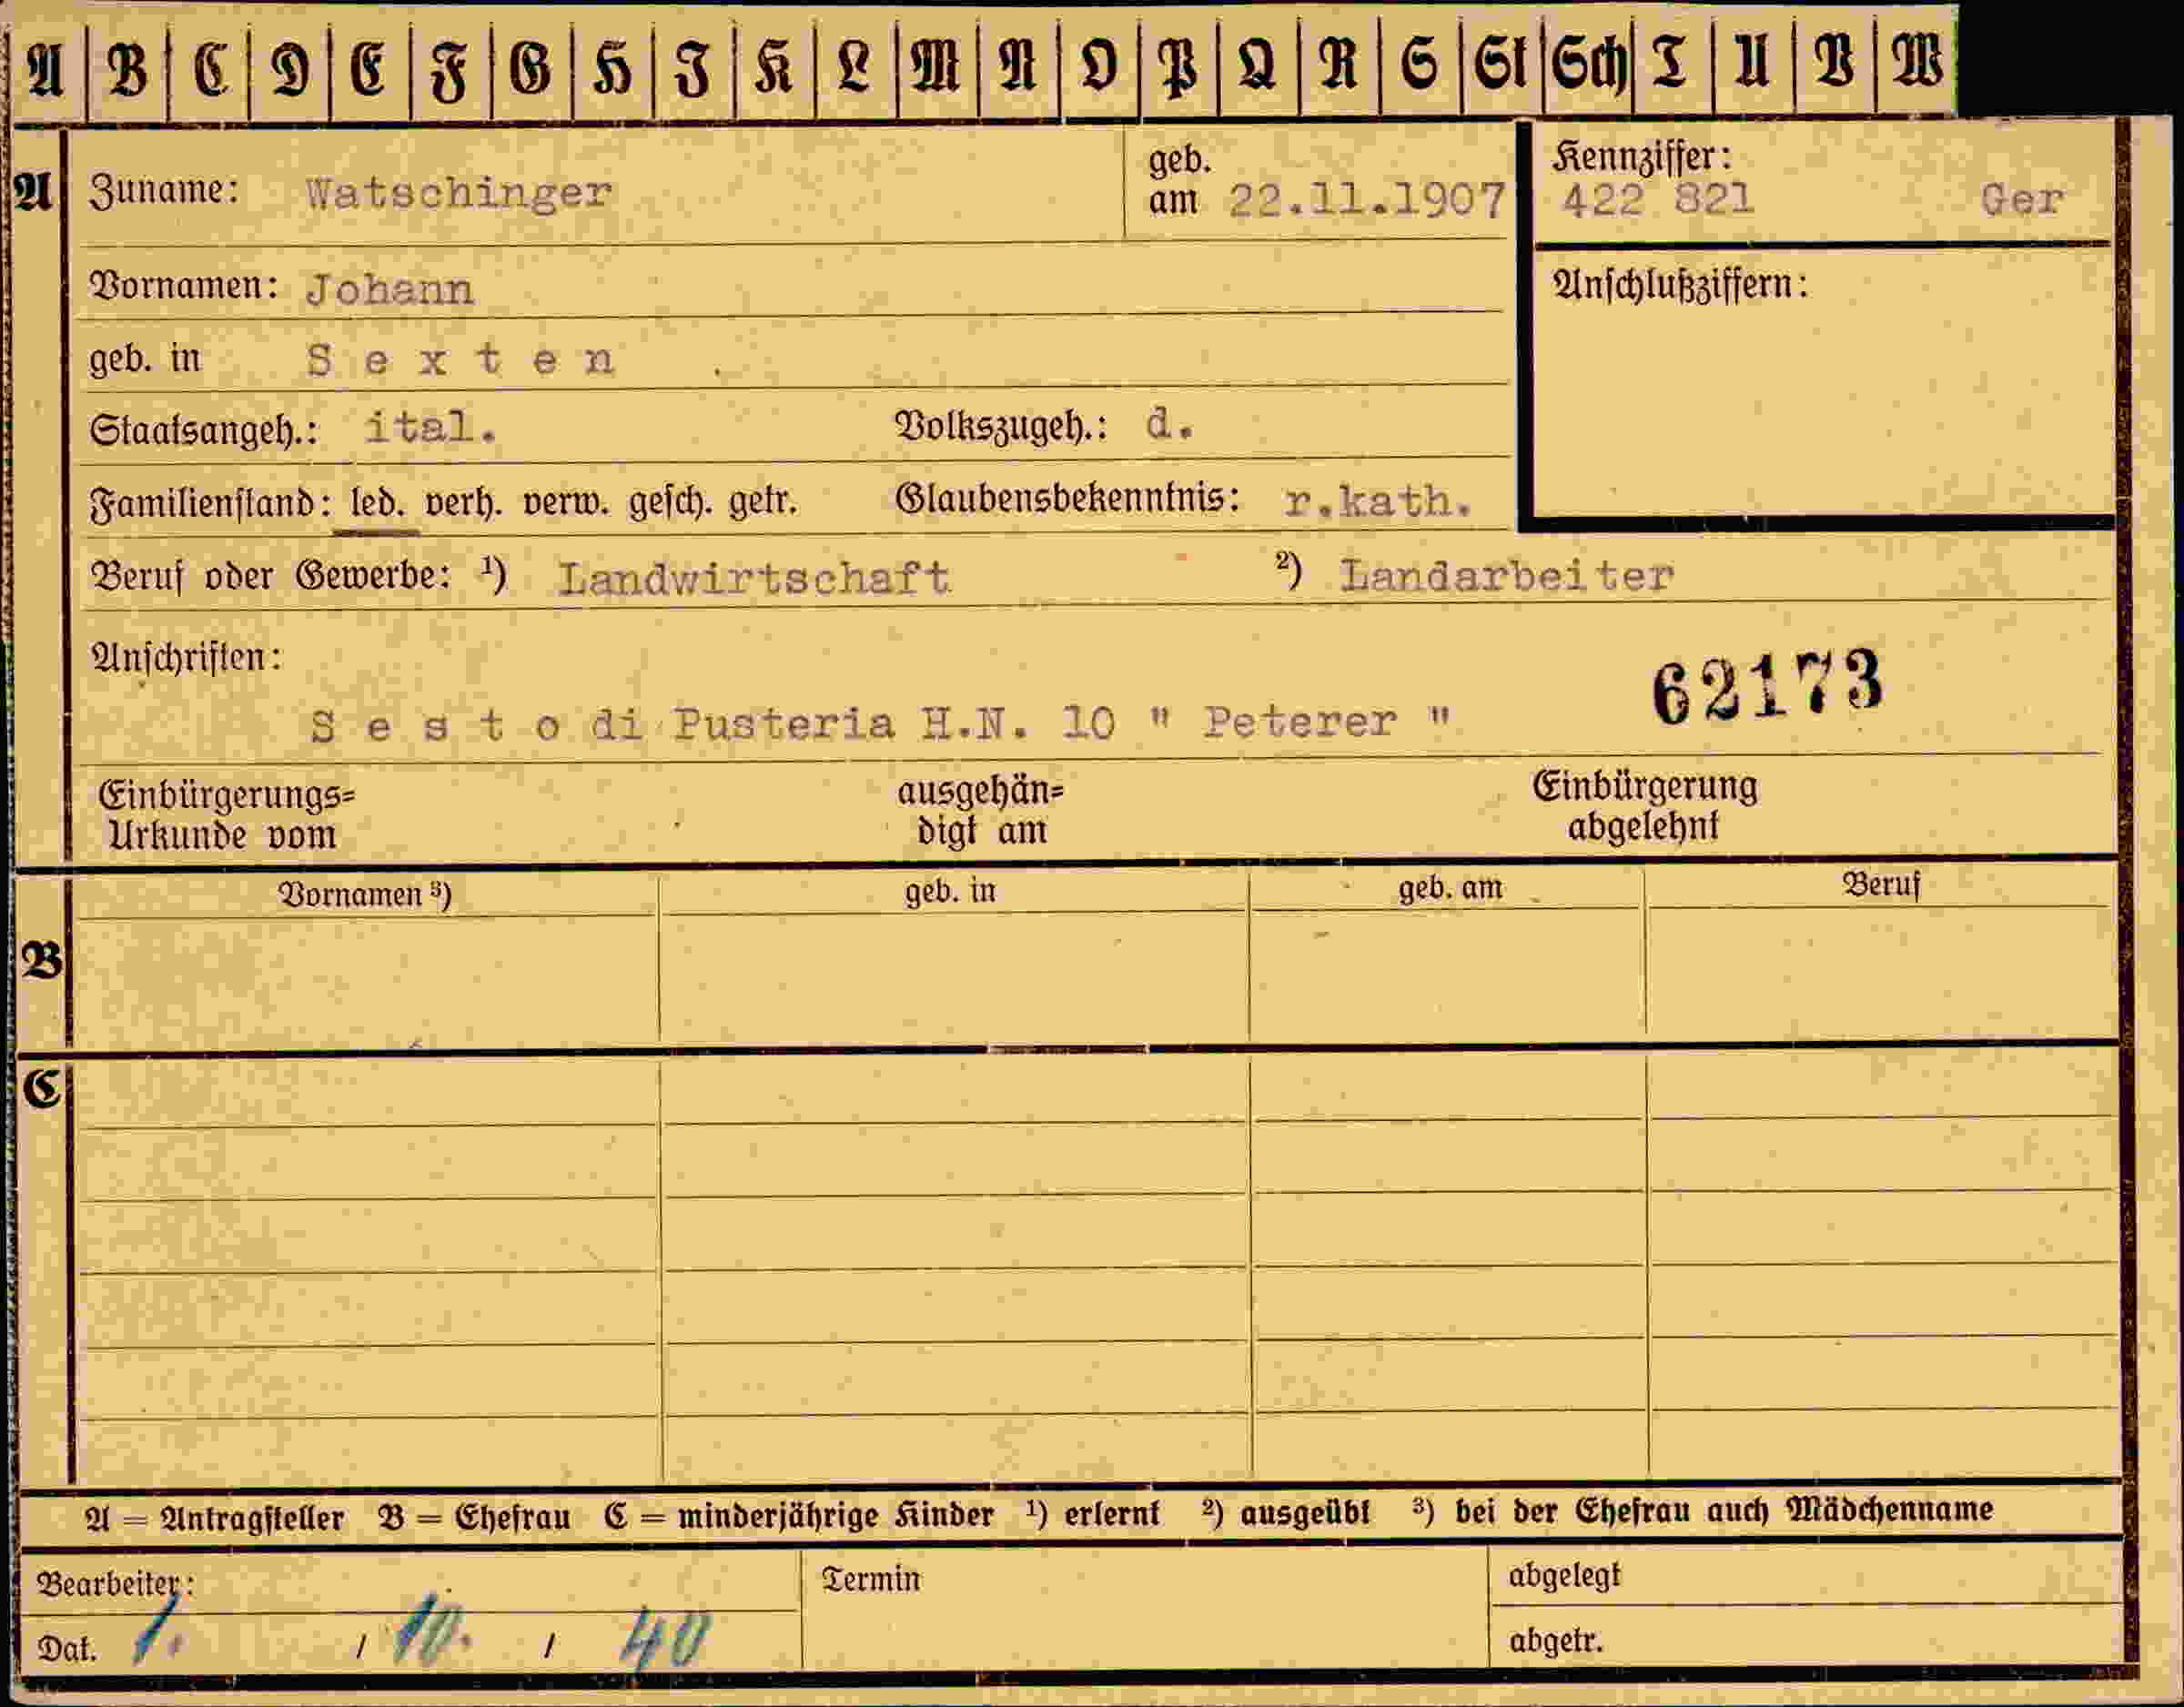 A B C D E F G H I K L M N O P Q R S St Sch T U V W
A Zuname: Watschinger geb. am 22.11.1907 Kennziffer: 422 821 Ger
Vornamen: Johann Anschlußziffern:
geb. in S e x t e n
Staatsangeh.: ital. Volkszugeh.: d.
Familienstand: led. verh. verw. gesch. getr. Glaubensbekenntnis: r.kath.
Beruf oder Gewerbe: ¹) Landwirtschaft ²) Landarbeiter
Anschriften:
62173
S e s t o di Pusteria H.N. 10 " Peterer "
Einbürgerungs= ausgehän= Einbürgerung
Urkunde vom digt am abgelehnt
Vornamen ³) geb. in geb. am Beruf
B
C
A = Antragsteller B = Ehefrau C = minderjährige Kinder ¹) erlernt ²) ausgeübt ³) bei der Ehefrau auch Mädchenname
Bearbeiter: Termin abgelegt
Dat. 1. / 10. / 40 abgetr.